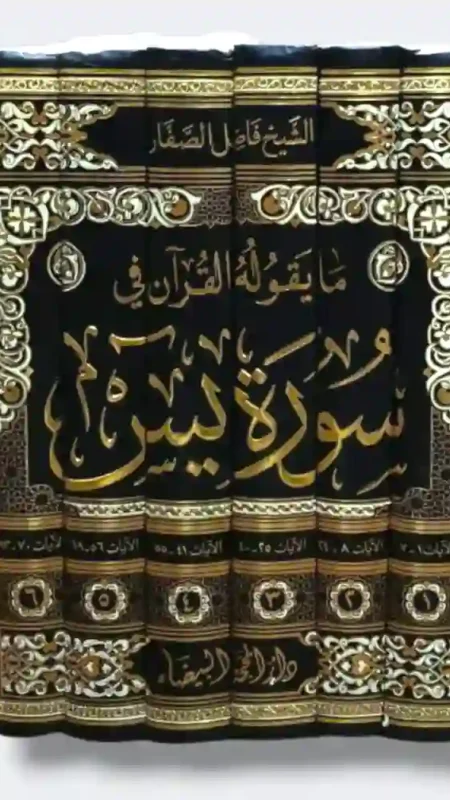 الشيخ فاضل الصفار
ما يقوله القرآن في
سُورَة يسٓ
الآيات ١-٧
الآيات ٨-٢٤
الآيات ٢٥-٤٠
الآيات ٤١-٥٥
الآيات ٥٦-٦٩
الآيات ٧٠-٨٣
١ ٢ ٣ ٤ ٥ ٦
دار المحجة البيضاء